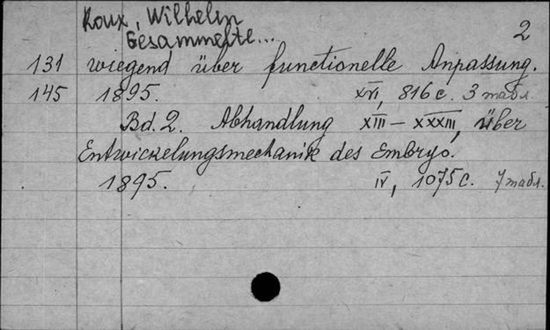 Roux, Wilhelm
Gesammelte...
2
131 wiegend über functionelle Anpassung.
145 1895. XVI, 816 с. 3 табл.
Bd. 2. Abhandlung XIII–XXXIII, über
Entwickelungsmechanik des Embryo.
1895. IV, 1075 с. 7 табл.